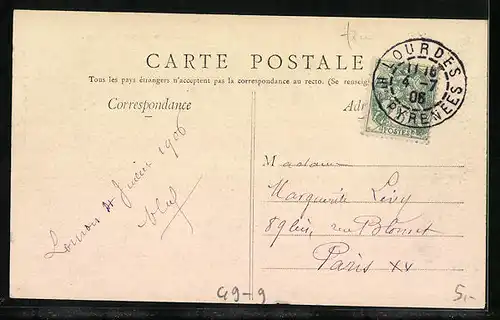 CARTE POSTALE
Tous les pays étrangers n'acceptent pas la correspondance au recto. (Se renseig
Correspondance
Adr
LOURDES
11 15
4 -7
06
H PYRENEES
POSTES
Juillet 1906
Madame
Marguerite Lévy
89 bis, rue Blomet
Paris XV
49-9
5,-